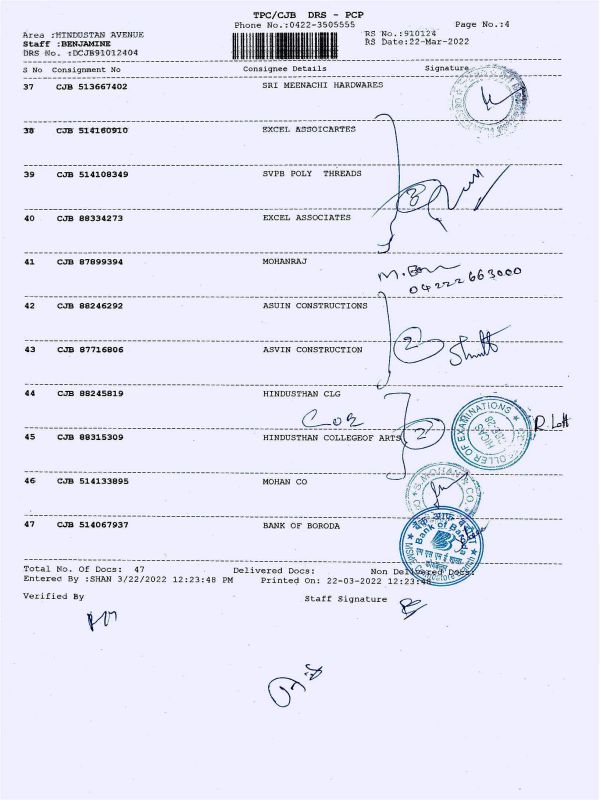 TPC/CJB DRS - PCP
Phone No.:0422-3505555 Page No.:4
Area :HINDUSTAN AVENUE RS No.:910124
Staff :BENJAMINE RS Date:22-Mar-2022
DRS No. :DCJB91012404
S No Consignment No Consignee Details Signature
37 CJB 513667402 SRI MEENACHI HARDWARES
38 CJB 514160910 EXCEL ASSOICARTES
39 CJB 514108349 SVPB POLY THREADS
3
40 CJB 88334273 EXCEL ASSOCIATES
41 CJB 87899394 MOHANRAJ
04222663000
42 CJB 88246292 ASUIN CONSTRUCTIONS
2
43 CJB 87716806 ASVIN CONSTRUCTION
44 CJB 88245819 HINDUSTHAN CLG
COE
CONTROLLER OF EXAMINATIONS
HICAS
45 CJB 88315309 HINDUSTHAN COLLEGEOF ARTS
2
46 CJB 514133895 MOHAN CO
S.MOHAN & CO
47 CJB 514067937 BANK OF BORODA
बैंक ऑफ़ बड़ौदा
Bank of Baroda
Total No. Of Docs: 47 Delivered Docs: Non Delivered Docs:
Entered By :SHAN 3/22/2022 12:23:48 PM Printed On: 22-03-2022 12:23:48
Verified By Staff Signature